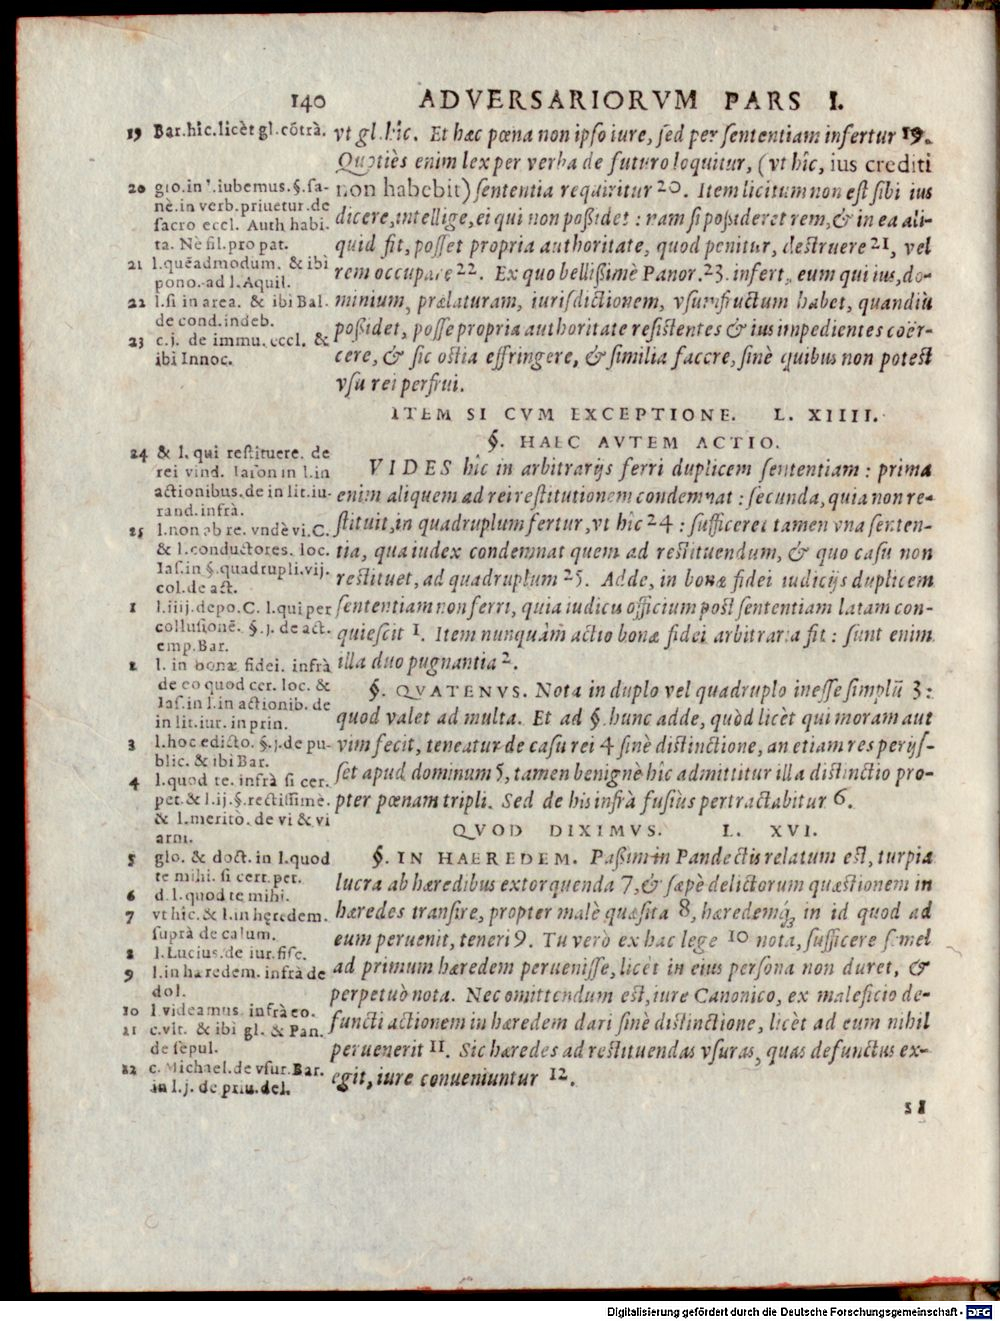 140 ADVERSARIORVM PARS I.
vt gl. hîc. Et hæc pœna non ipso iure, sed per sententiam infertur 19.
Quotiès enim lex per verba de futuro loquitur, (vt hîc, ius crediti
non habebit) sententia requiritur 20. Item licitum non est sibi ius
dicere, intellige, ei qui non poßidet: nam si poßideret rem, & in ea ali-
quid fit, posset propria authoritate, quod penitur, destruere 21, vel
rem occupare 22. Ex quo bellißimè Panor. 23. infert, eum qui ius, do-
minium, prælaturam, iurisdictionem, vsumfructum habet, quandiù
poßidet, posse propria authoritate resistentes & ius impedientes coër-
cere, & sic ostia effringere, & similia facere, sinè quibus non potest
vsu rei perfrui.
ITEM SI CVM EXCEPTIONE. L. XIIII.
§. HAEC AVTEM ACTIO.
VIDES hîc in arbitrarijs ferri duplicem sententiam: prima
enim aliquem ad rei restitutionem condemnat: secunda, quia non re-
stituit, in quadruplum fertur, vt hîc 24: sufficeret tamen vna senten-
tia, qua iudex condemnat quem ad restituendum, & quo casu non
restituet, ad quadruplum 25. Adde, in bonæ fidei iudicijs duplicem
sententiam non ferri, quia iudicis officium post sententiam latam con-
quiescit 1. Item nunquàm actio bonæ fidei arbitraria fit: sunt enim
illa duo pugnantia 2.
§. QVATENVS. Nota in duplo vel quadruplo inesse simplũ 3:
quod valet ad multa. Et ad §. hunc adde, quòd licèt qui moram aut
vim fecit, teneatur de casu rei 4 sinè distinctione, an etiam res perijs-
set apud dominum 5, tamen benignè hîc admittitur illa distinctio pro-
pter pœnam tripli. Sed de his infrà fusiùs pertractabitur 6.
QVOD DIXIMVS. L. XVI.
§. IN HAEREDEM. Paßim in Pandectis relatum est, turpia
lucra ab hæredibus extorquenda 7, & sæpè delictorum quæstionem in
hæredes transire, propter malè quæsita 8, hæredemq́; in id quod ad
eum peruenit, teneri 9. Tu verò ex hac lege 10 nota, sufficere semel
ad primum hæredem peruenisse, licèt in eius persona non duret, &
perpetuò nota. Nec omittendum est, iure Canonico, ex maleficio de-
functi actionem in hæredem dari sinè distinctione, licèt ad eum nihil
peruenerit 11. Sic hæredes ad restituendas vsuras, quas defunctus ex-
egit, iure conueniuntur 12.
19 Bar. hîc. licèt gl. cõtrà.
20 glo. in l. iubemus. §. sa-
nè. in verb. priuetur. de
sacro eccl. Auth habi-
ta. Nè fil. pro pat.
21 l. quẽadmodum. & ibi
pono. ad l. Aquil.
22 l. si in area. & ibi Bal.
de cond. indeb.
23 c. j. de immu. eccl. &
ibi Innoc.
24 & l. qui restituere. de
rei vind. Iason in l. in
actionibus. de in lit. iu-
rand. infrà.
25 l. non ab re. vndè vi. C.
& l. conductores. loc.
Ias. in §. quadrupli. vij.
col. de act.
1 l. iiij. depo. C. l. qui per
collusionẽ. §. j. de act.
emp. Bar.
2 l. in bonæ fidei. infrà
de eo quod cer. loc. &
Ias. in l. in actionib. de
in lit. iur. in prin.
3 l. hoc edicto. §. j. de pu-
blic. & ibi Bar.
4 l. quod te. infrà si cer.
pet. & l. ij. §. rectissimè.
& l. meritò. de vi & vi
arm.
5 glo. & doct. in l. quod
te mihi. si cert. pet.
6 d. l. quod te mihi.
7 vt hîc. & l. in hęredem.
suprà de calum.
8 l. Lucius. de iur. fisc.
9 l. in hæredem. infrà de
dol.
10 l videamus. infrà eo.
11 c. vlt. & ibi gl. & Pan.
de sepul.
12 c. Michael. de vsur. Bar.
in l. j. de priu. del.
SI
Digitalisierung gefördert durch die Deutsche Forschungsgemeinschaft - DFG